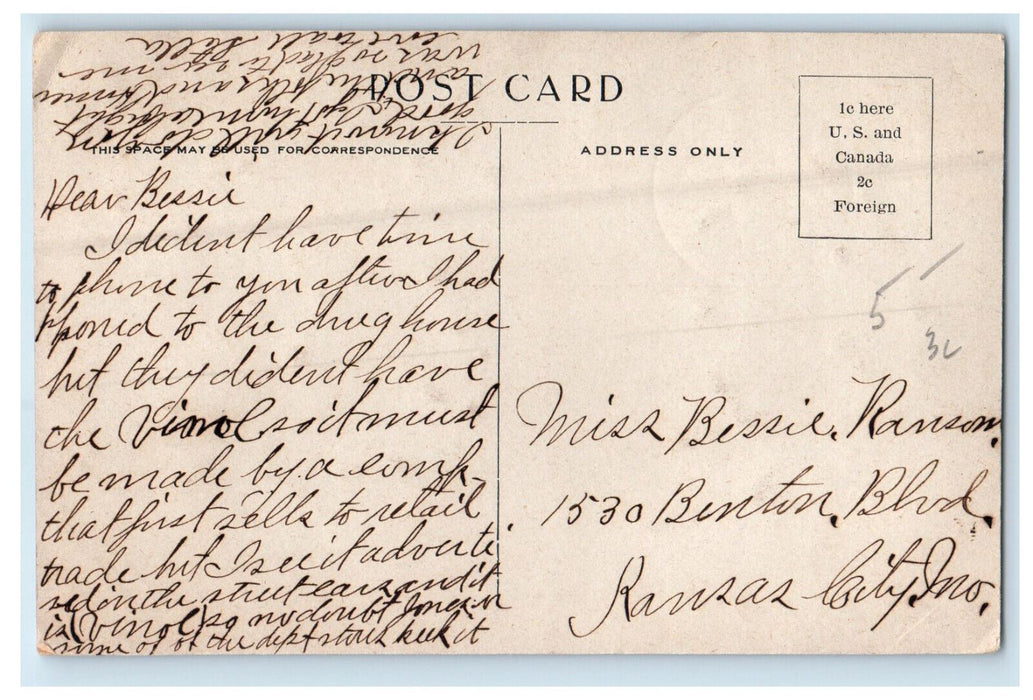 POST CARD
THIS SPACE MAY BE USED FOR CORRESPONDENCE
ADDRESS ONLY
1c here
U. S. and
Canada
2c
Foreign
5
3c
Dear Bessie
I dident have time
to phone to you after I had
phoned to the drug house
but they dident have
the Vinol so it must
be made by a comp.
that just sells to retail
trade but I see it adverti
sed in the street cars and it
is (Vinol) so no doubt Jones or
some of the dept stores keep it
Miss Bessie. Ranson.
1530 Benton, Blvd.
Kansas City. Mo.
I know it will do
good
and
was so glad to see me
love to all Stella